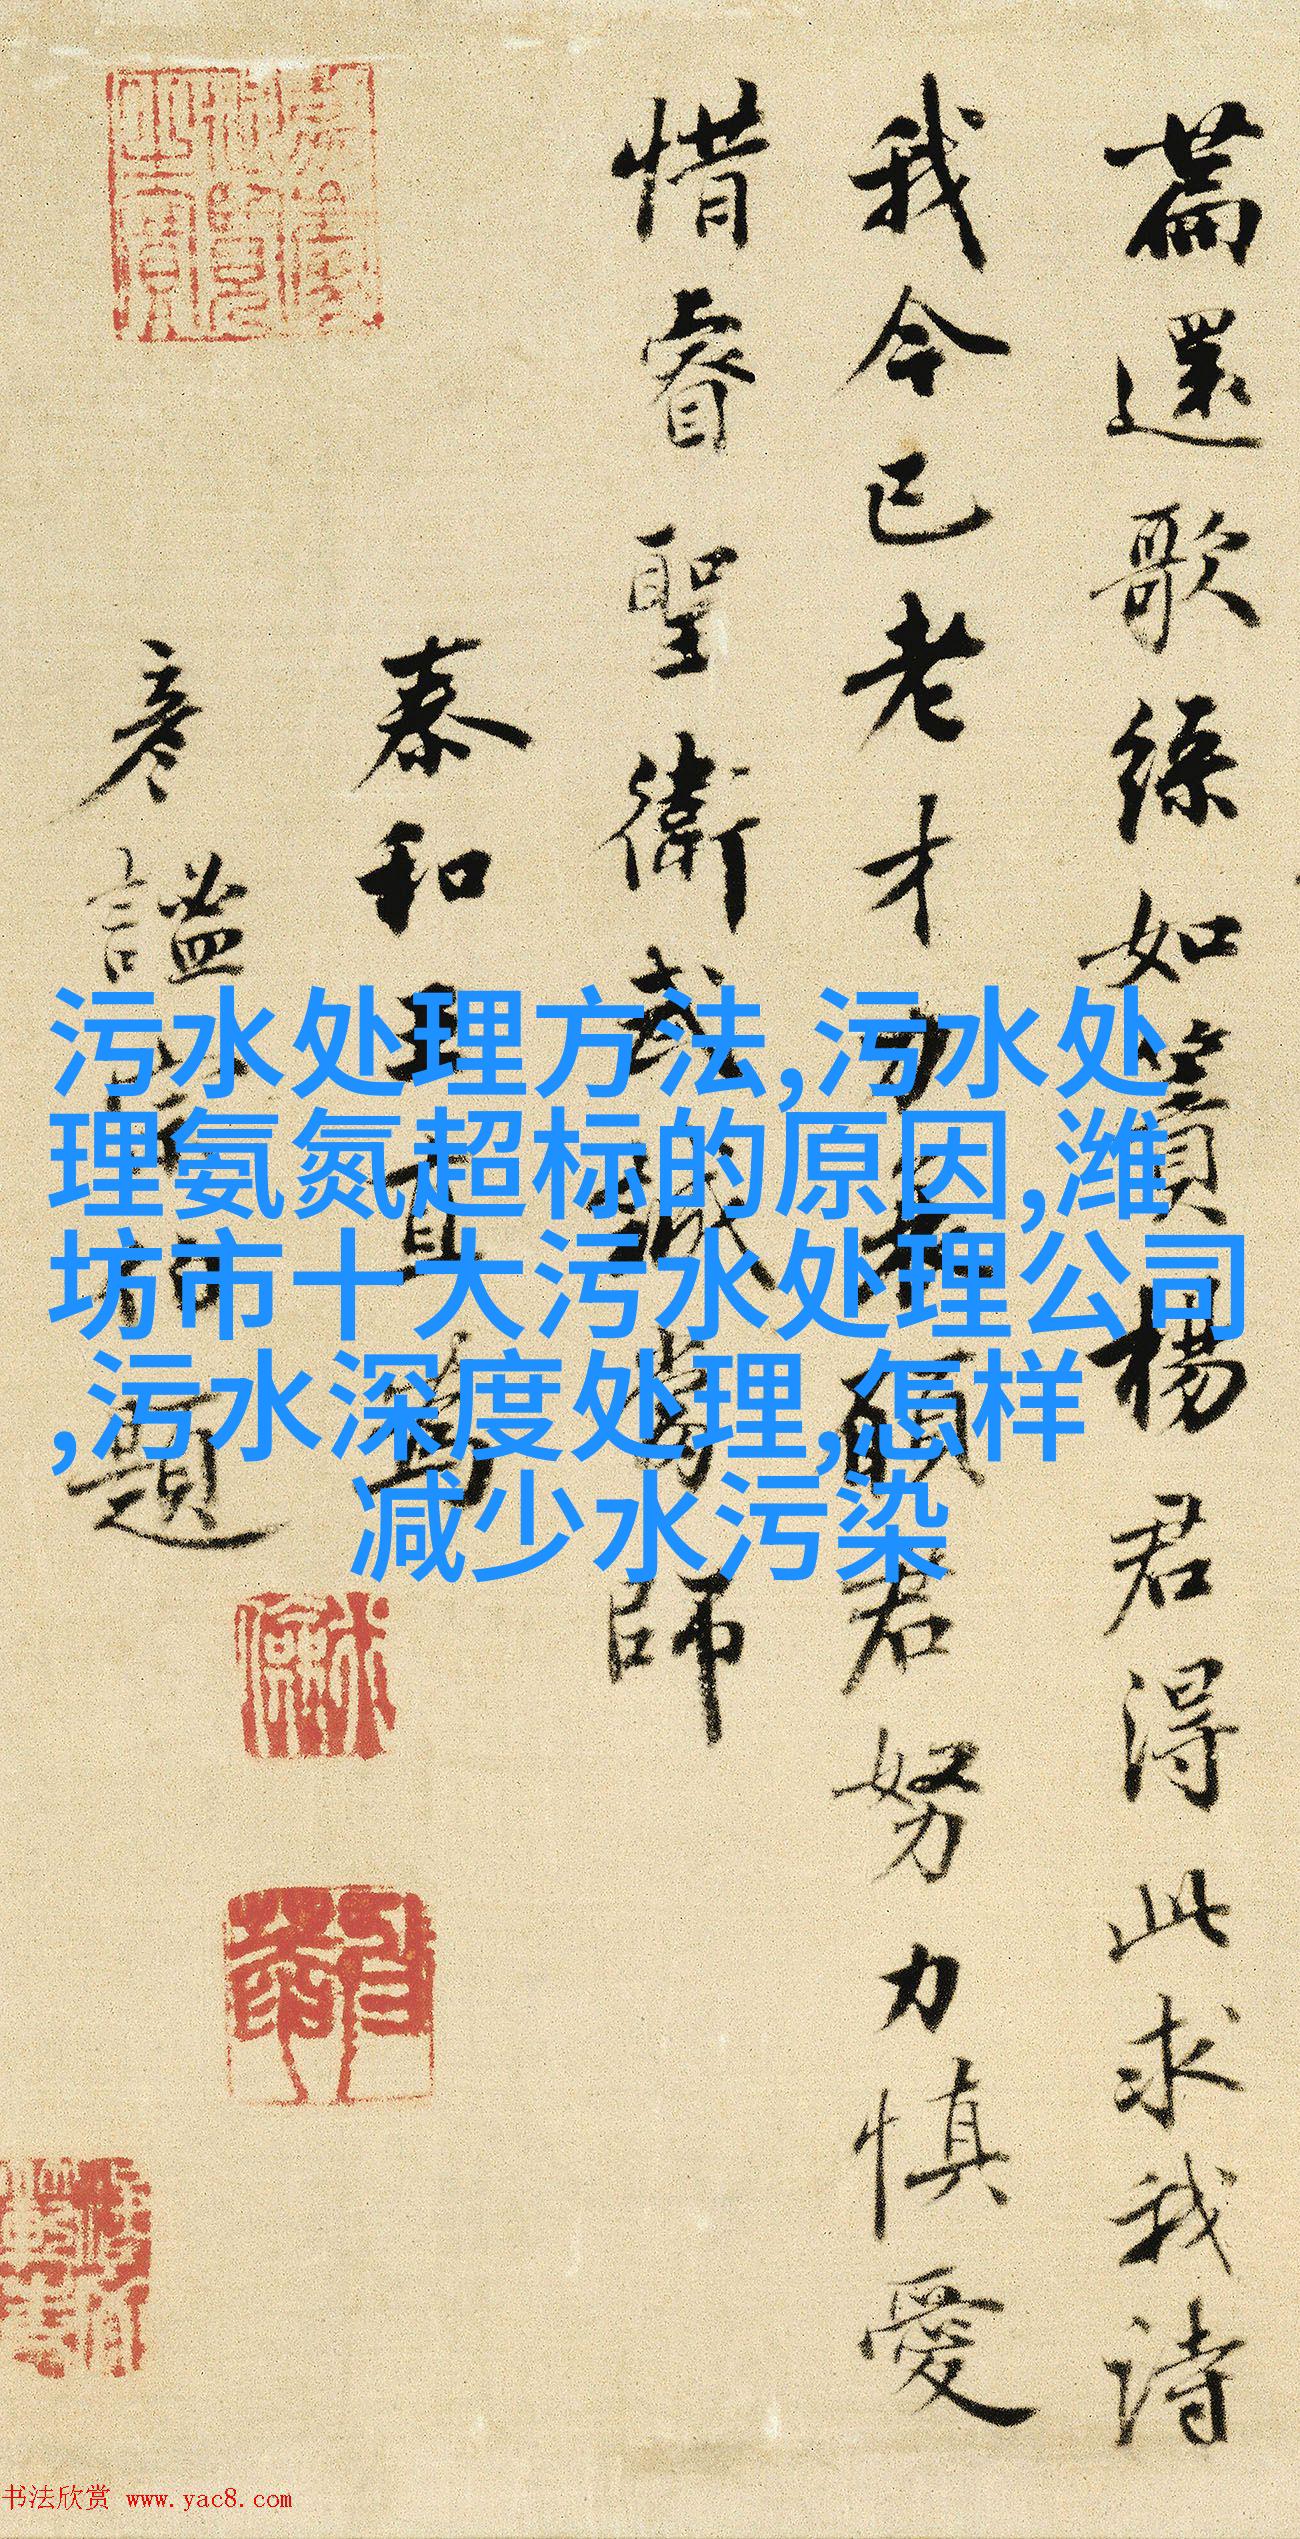 篇還歌繰如寳楊君得此求我詩
我今已老才力
願君努力慎愛
惜睿聖衛武誠當師
泰和王直為
彦謐
題
污水处理方法,污水处
理氨氮超标的原因,潍
坊市十大污水处理公司
,污水深度处理,怎样
减少水污染
书法欣赏 www.yac8.com